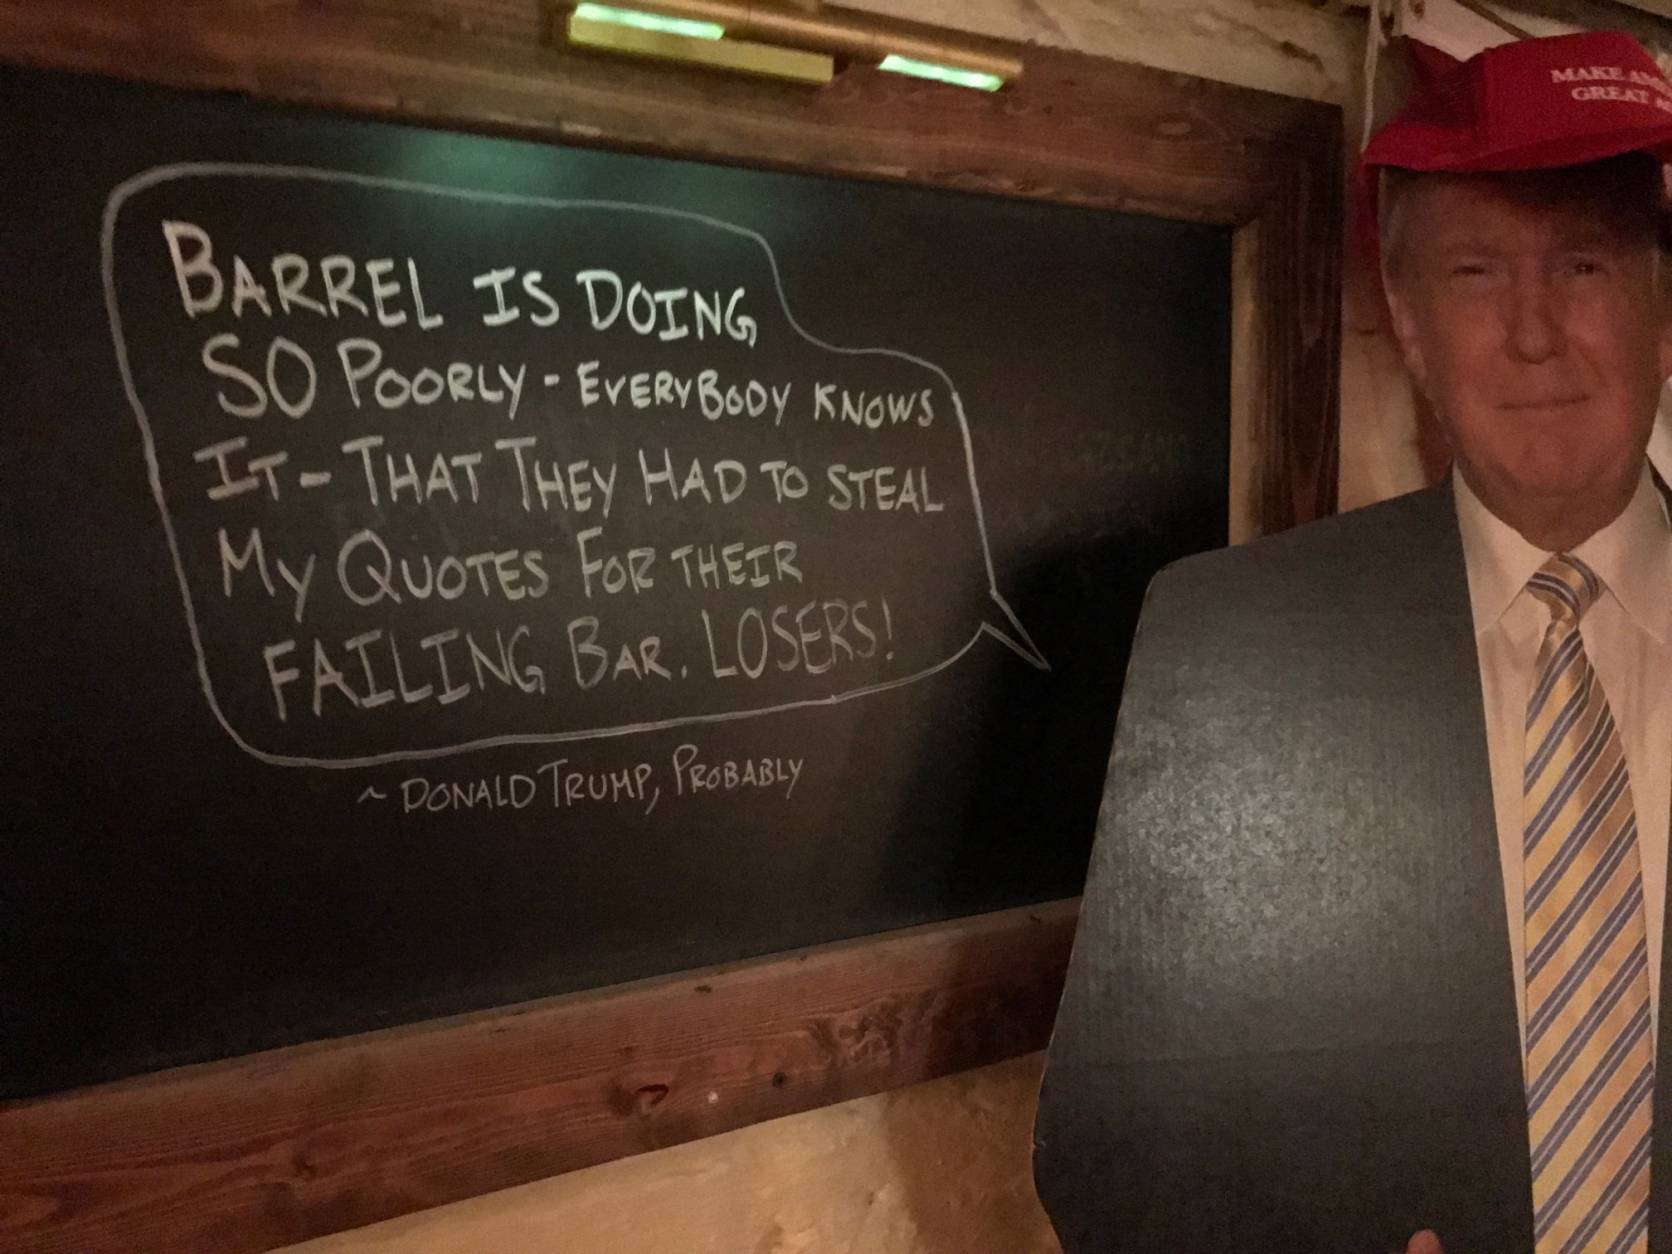 BARREL IS DOING
SO POORLY - EVERYBODY KNOWS
IT - THAT THEY HAD TO STEAL
MY QUOTES FOR THEIR
FAILING BAR. LOSERS!
~ DONALD TRUMP, PROBABLY
MAKE
GREAT